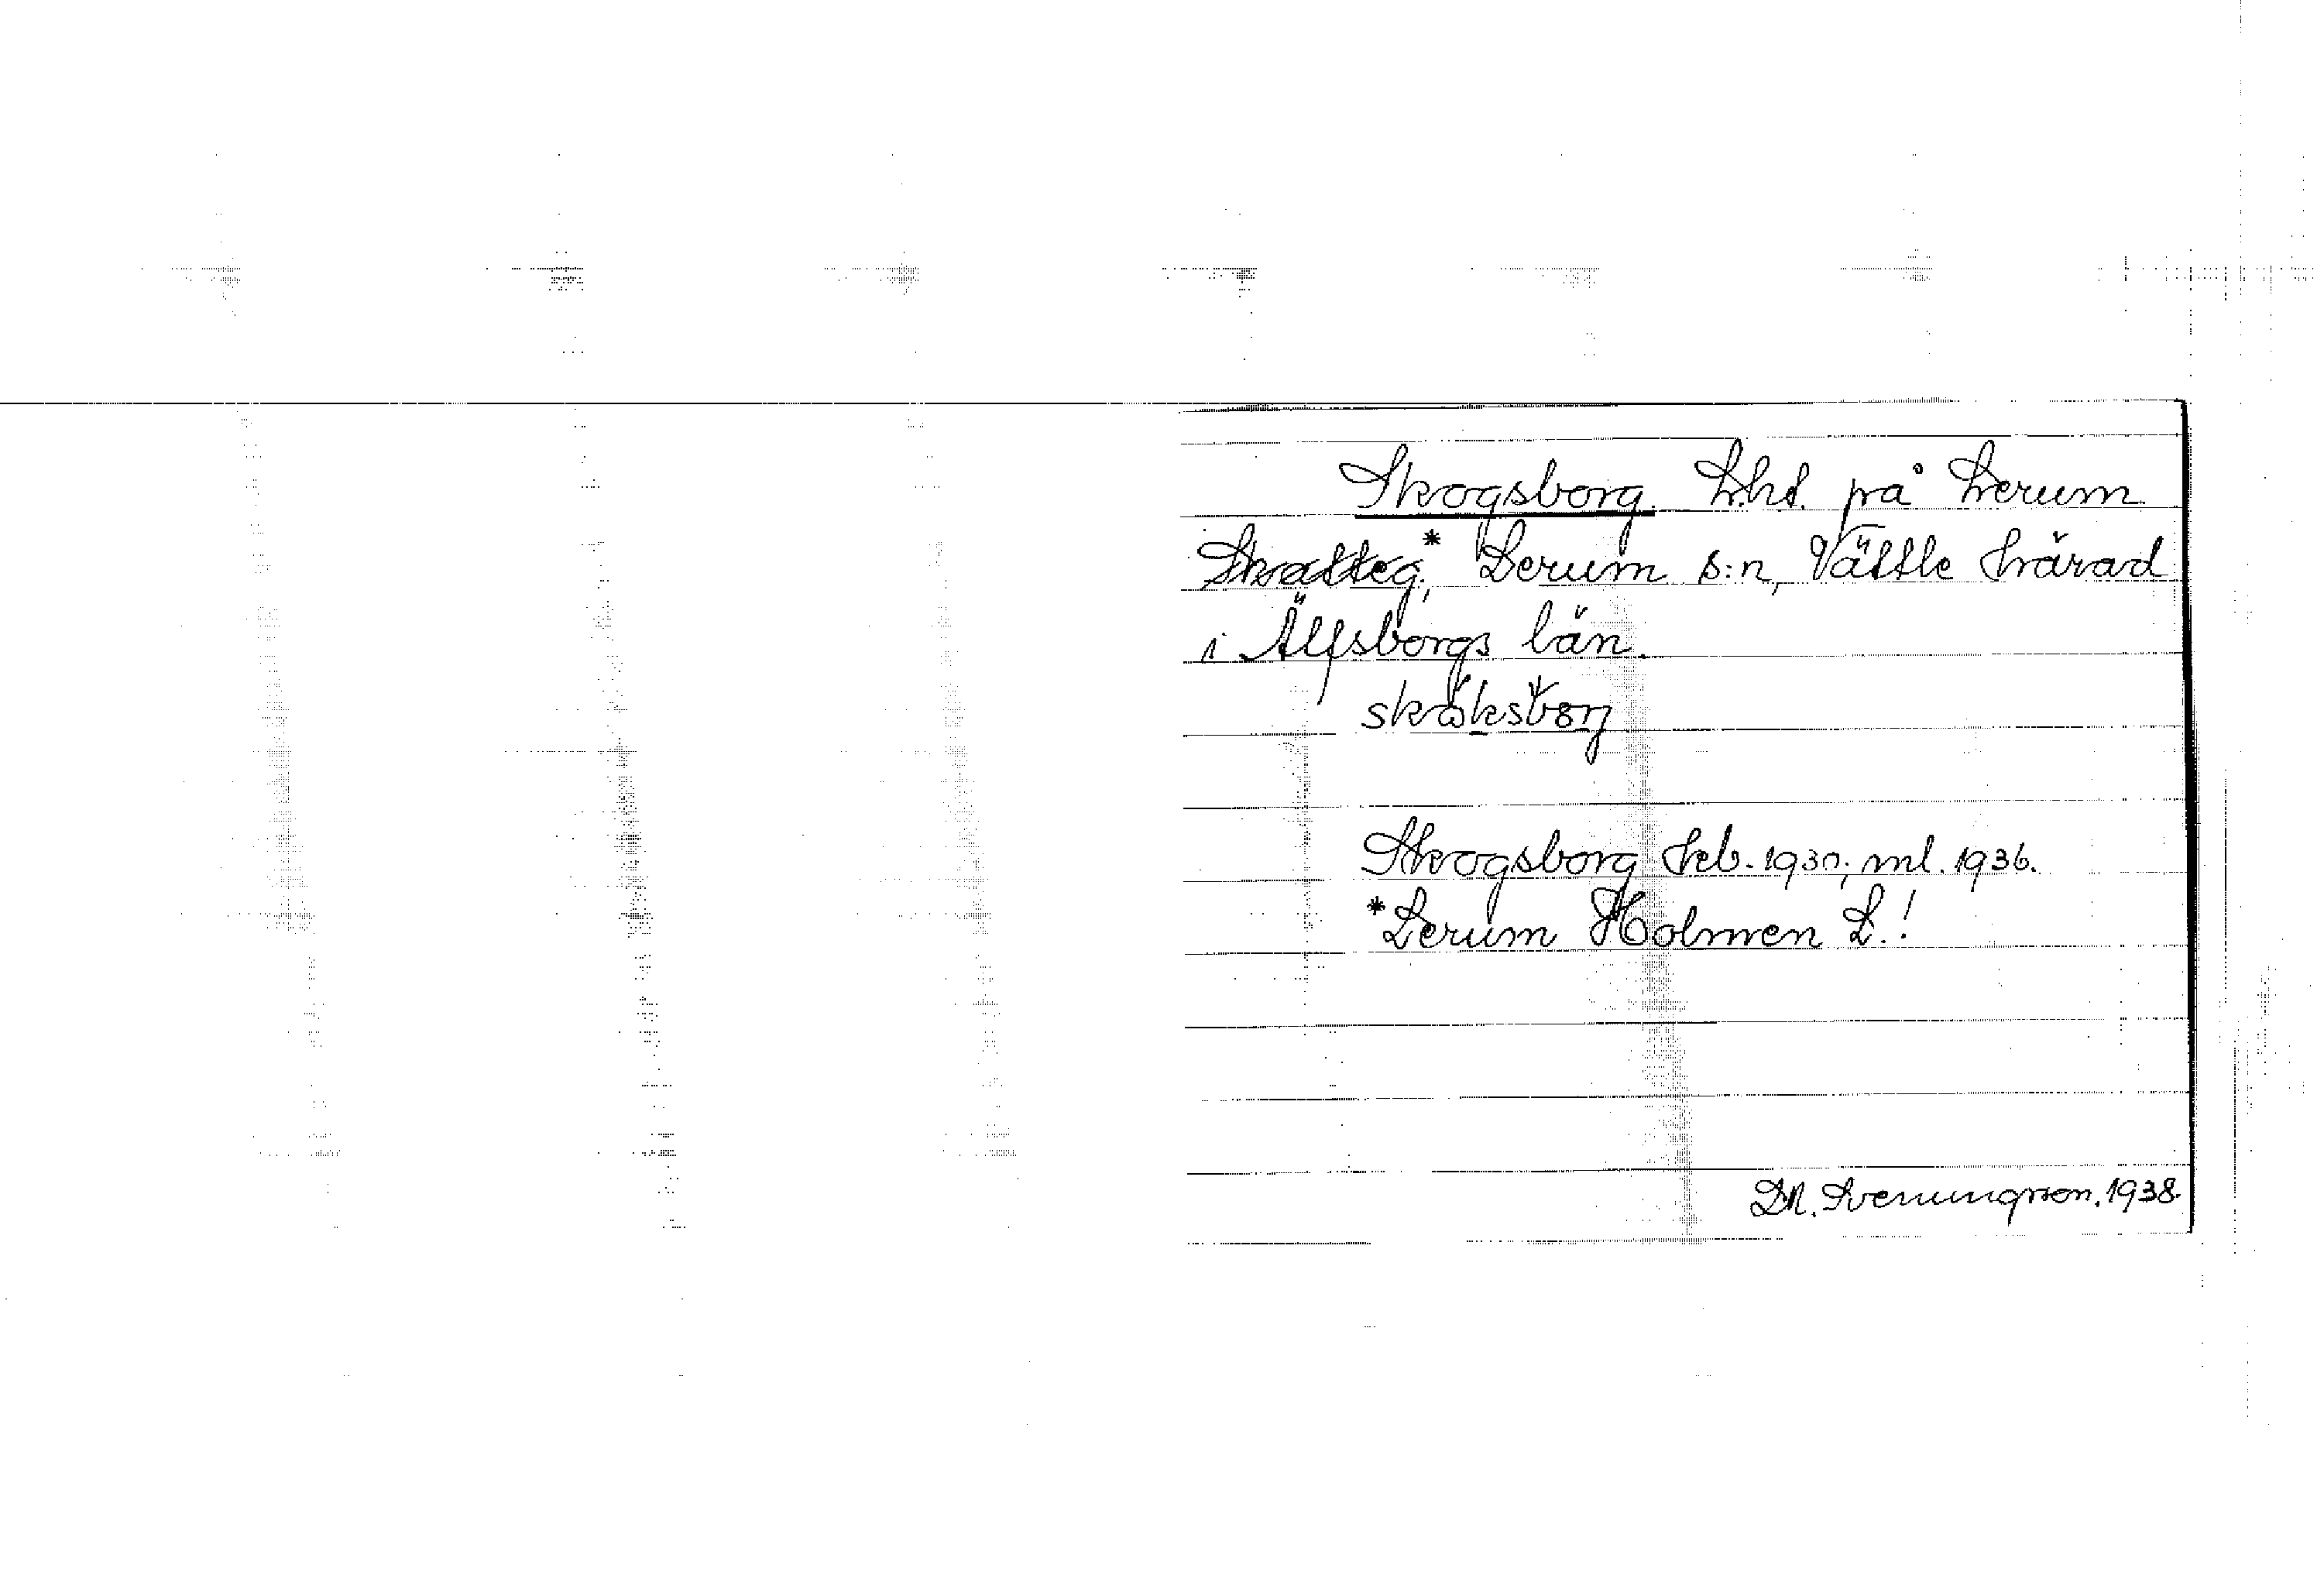 Skogsborg. Lht. på Lerum
Skatteg.,* Lerum s:n, Vättle härad
i Älfsborgs län.
skoksborj
Skogsborg Jeb. 1930; ml. 1936.
*Lerum Holmen L.!
1938.